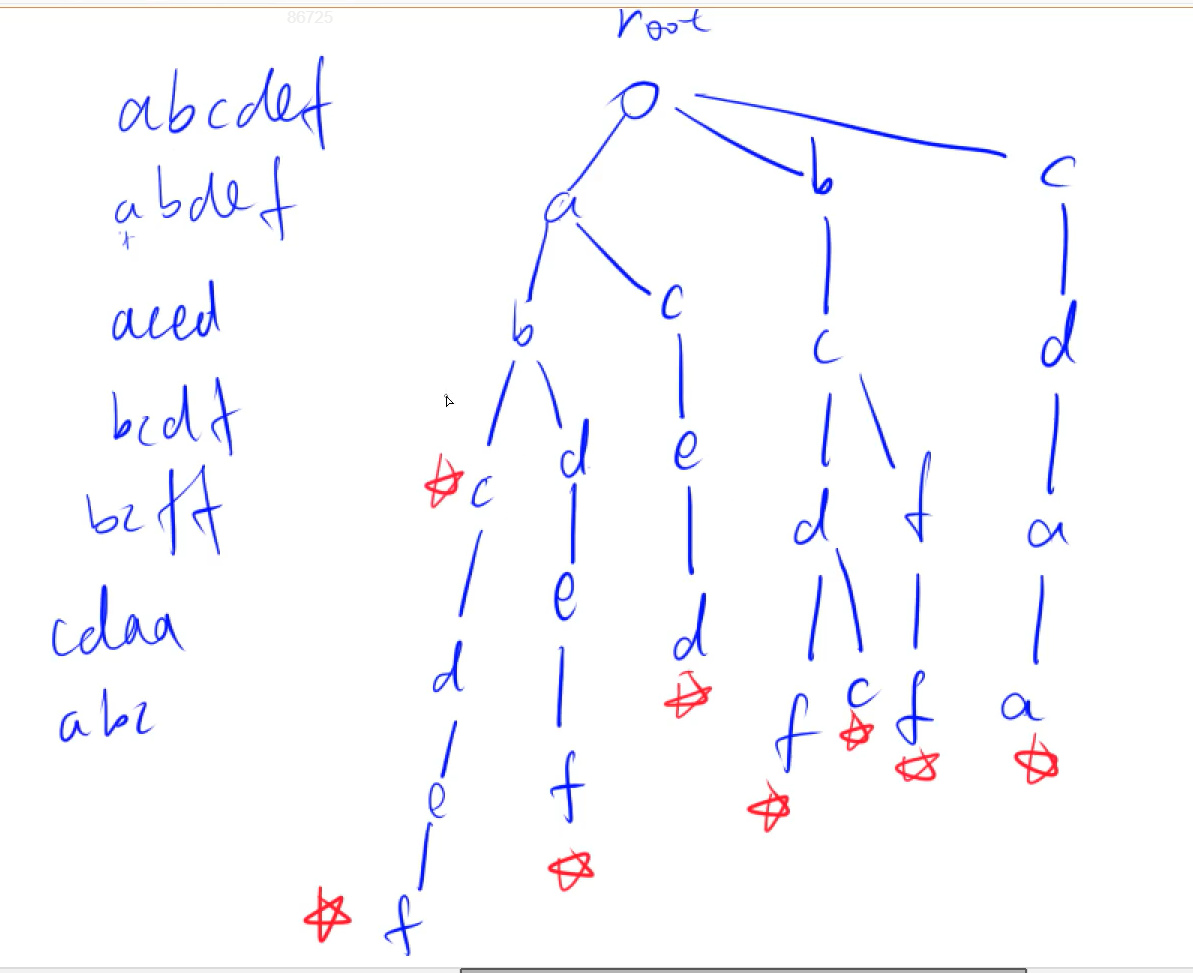 86725
root
abcdef
abdef
aced
bcdf
bcff
cdaa
abc
a b c
b c c d
c d e d f a
d e d f c f a
e f
f